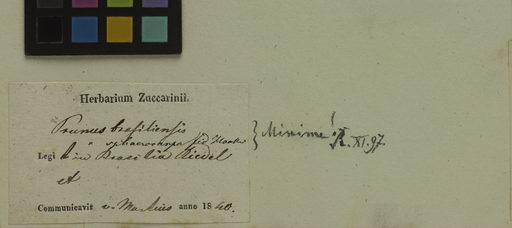 Herbarium Zuccarinii.
Prunus brasiliensis
" sphaerocarpa
Legi in Brasilia Riedel
et
Communicavit v. Martius anno 1840.
} Minime! R. XI. 97.